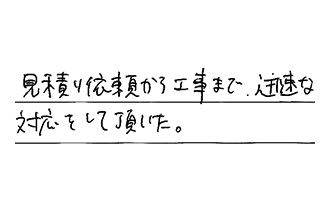 見積り依頼から工事まで、迅速な
対応をして頂いた。